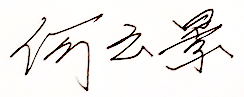 何云景